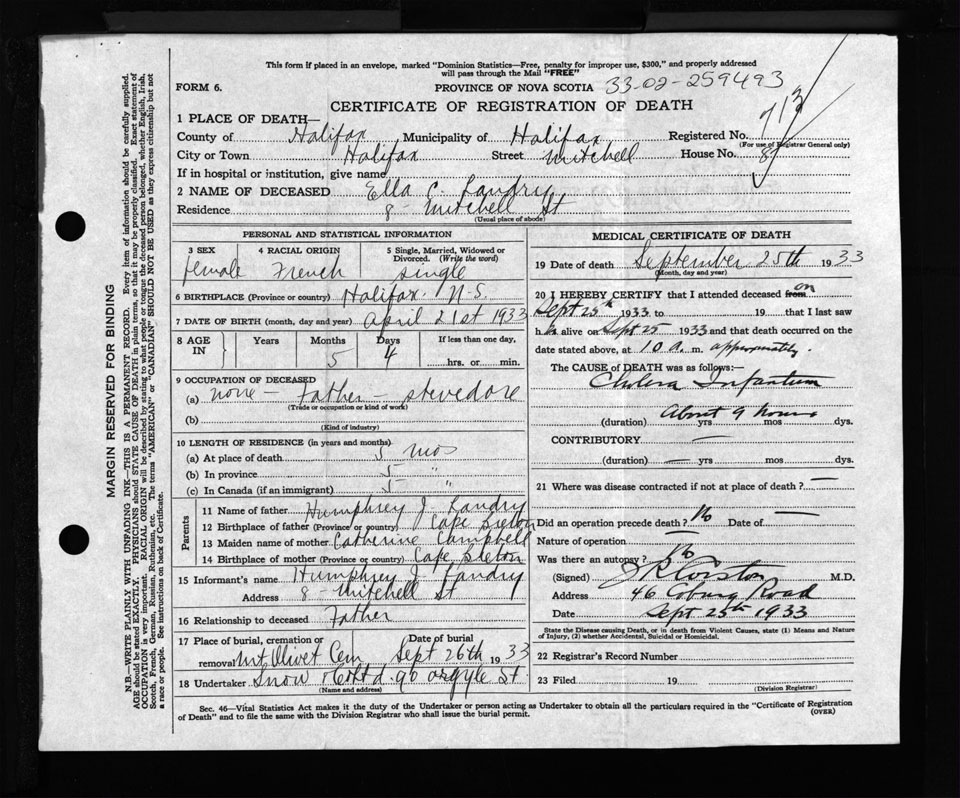 This form if placed in an envelope, marked "Dominion Statistics—Free, penalty for improper use, $300," and properly addressed
will pass through the Mail "FREE"
FORM 6.
PROVINCE OF NOVA SCOTIA 33-02-259493
CERTIFICATE OF REGISTRATION OF DEATH
1 PLACE OF DEATH—
County of Halifax Municipality of Halifax Registered No. 713
(For use of Registrar General only)
City or Town Halifax Street Mitchell House No. 8
If in hospital or institution, give name
2 NAME OF DECEASED Ella C. Landry
Residence 8 - Mitchell St
(Usual place of abode)
PERSONAL AND STATISTICAL INFORMATION
3 SEX 4 RACIAL ORIGIN 5 Single, Married, Widowed or
Divorced. (Write the word)
female French single
6 BIRTHPLACE (Province or country) Halifax. N-S.
7 DATE OF BIRTH (month, day and year) April 21st 1933
8 AGE IN Years Months Days If less than one day,
5 4 hrs. or min.
9 OCCUPATION OF DECEASED
(a) none - Father - stevedore
(Trade or occupation or kind of work)
(b)
(Kind of industry)
10 LENGTH OF RESIDENCE (in years and months)
(a) At place of death 5 mos
(b) In province 5 "
(c) In Canada (if an immigrant) 5 "
Parents
11 Name of father Humphrey J. Landry
12 Birthplace of father (Province or country) Cape Breton
13 Maiden name of mother Catherine Campbell
14 Birthplace of mother (Province or country) Cape Breton
15 Informant's name Humphrey J. Landry
Address 8 - Mitchell St
16 Relationship to deceased Father
17 Place of burial, cremation or Date of burial
removal Mt. Olivet Cem Sept 26th 1933
18 Undertaker Snow & Co Ltd. 90 Argyle St
(Name and address)
MEDICAL CERTIFICATE OF DEATH
19 Date of death September 25th 1933
(Month, day and year)
20 I HEREBY CERTIFY that I attended deceased from on
Sept 25th 1933 to 19 that I last saw
h alive on Sept 25 1933 and that death occurred on the
date stated above, at 10 a. m. approximately.
The CAUSE OF DEATH was as follows:—
Cholera Infantum
About 9 hours
(duration) yrs mos dys.
CONTRIBUTORY —
(duration) — yrs mos dys.
21 Where was disease contracted if not at place of death? —
Did an operation precede death? No Date of —
Nature of operation —
Was there an autopsy? No
(Signed) M.D.
Address 46 Coburg Road
Date Sept 25th 1933
State the Disease causing Death, or in death from Violent Causes, state (1) Means and Nature
of Injury, (2) whether Accidental, Suicidal or Homicidal.
22 Registrar's Record Number
23 Filed 19
(Division Registrar)
Sec. 46—Vital Statistics Act makes it the duty of the Undertaker or person acting as Undertaker to obtain all the particulars required in the "Certificate of Registration
of Death" and to file the same with the Division Registrar who shall issue the burial permit. (OVER)
MARGIN RESERVED FOR BINDING
N.B.—WRITE PLAINLY WITH UNFADING INK—THIS IS A PERMANENT RECORD. Every item of information should be carefully supplied.
AGE should be stated EXACTLY. PHYSICIANS should STATE CAUSE OF DEATH in plain terms, so that it may be properly classified. Exact statement of
OCCUPATION is very important. RACIAL ORIGIN will be described by stating to what people or tongue the deceased person belonged, whether English, Irish,
Scotch, French, German, Russian, Ruthenian, etc. The terms "AMERICAN" or "CANADIAN" SHOULD NOT BE USED as they express citizenship but not
a race or people. See instructions on back of Certificate.